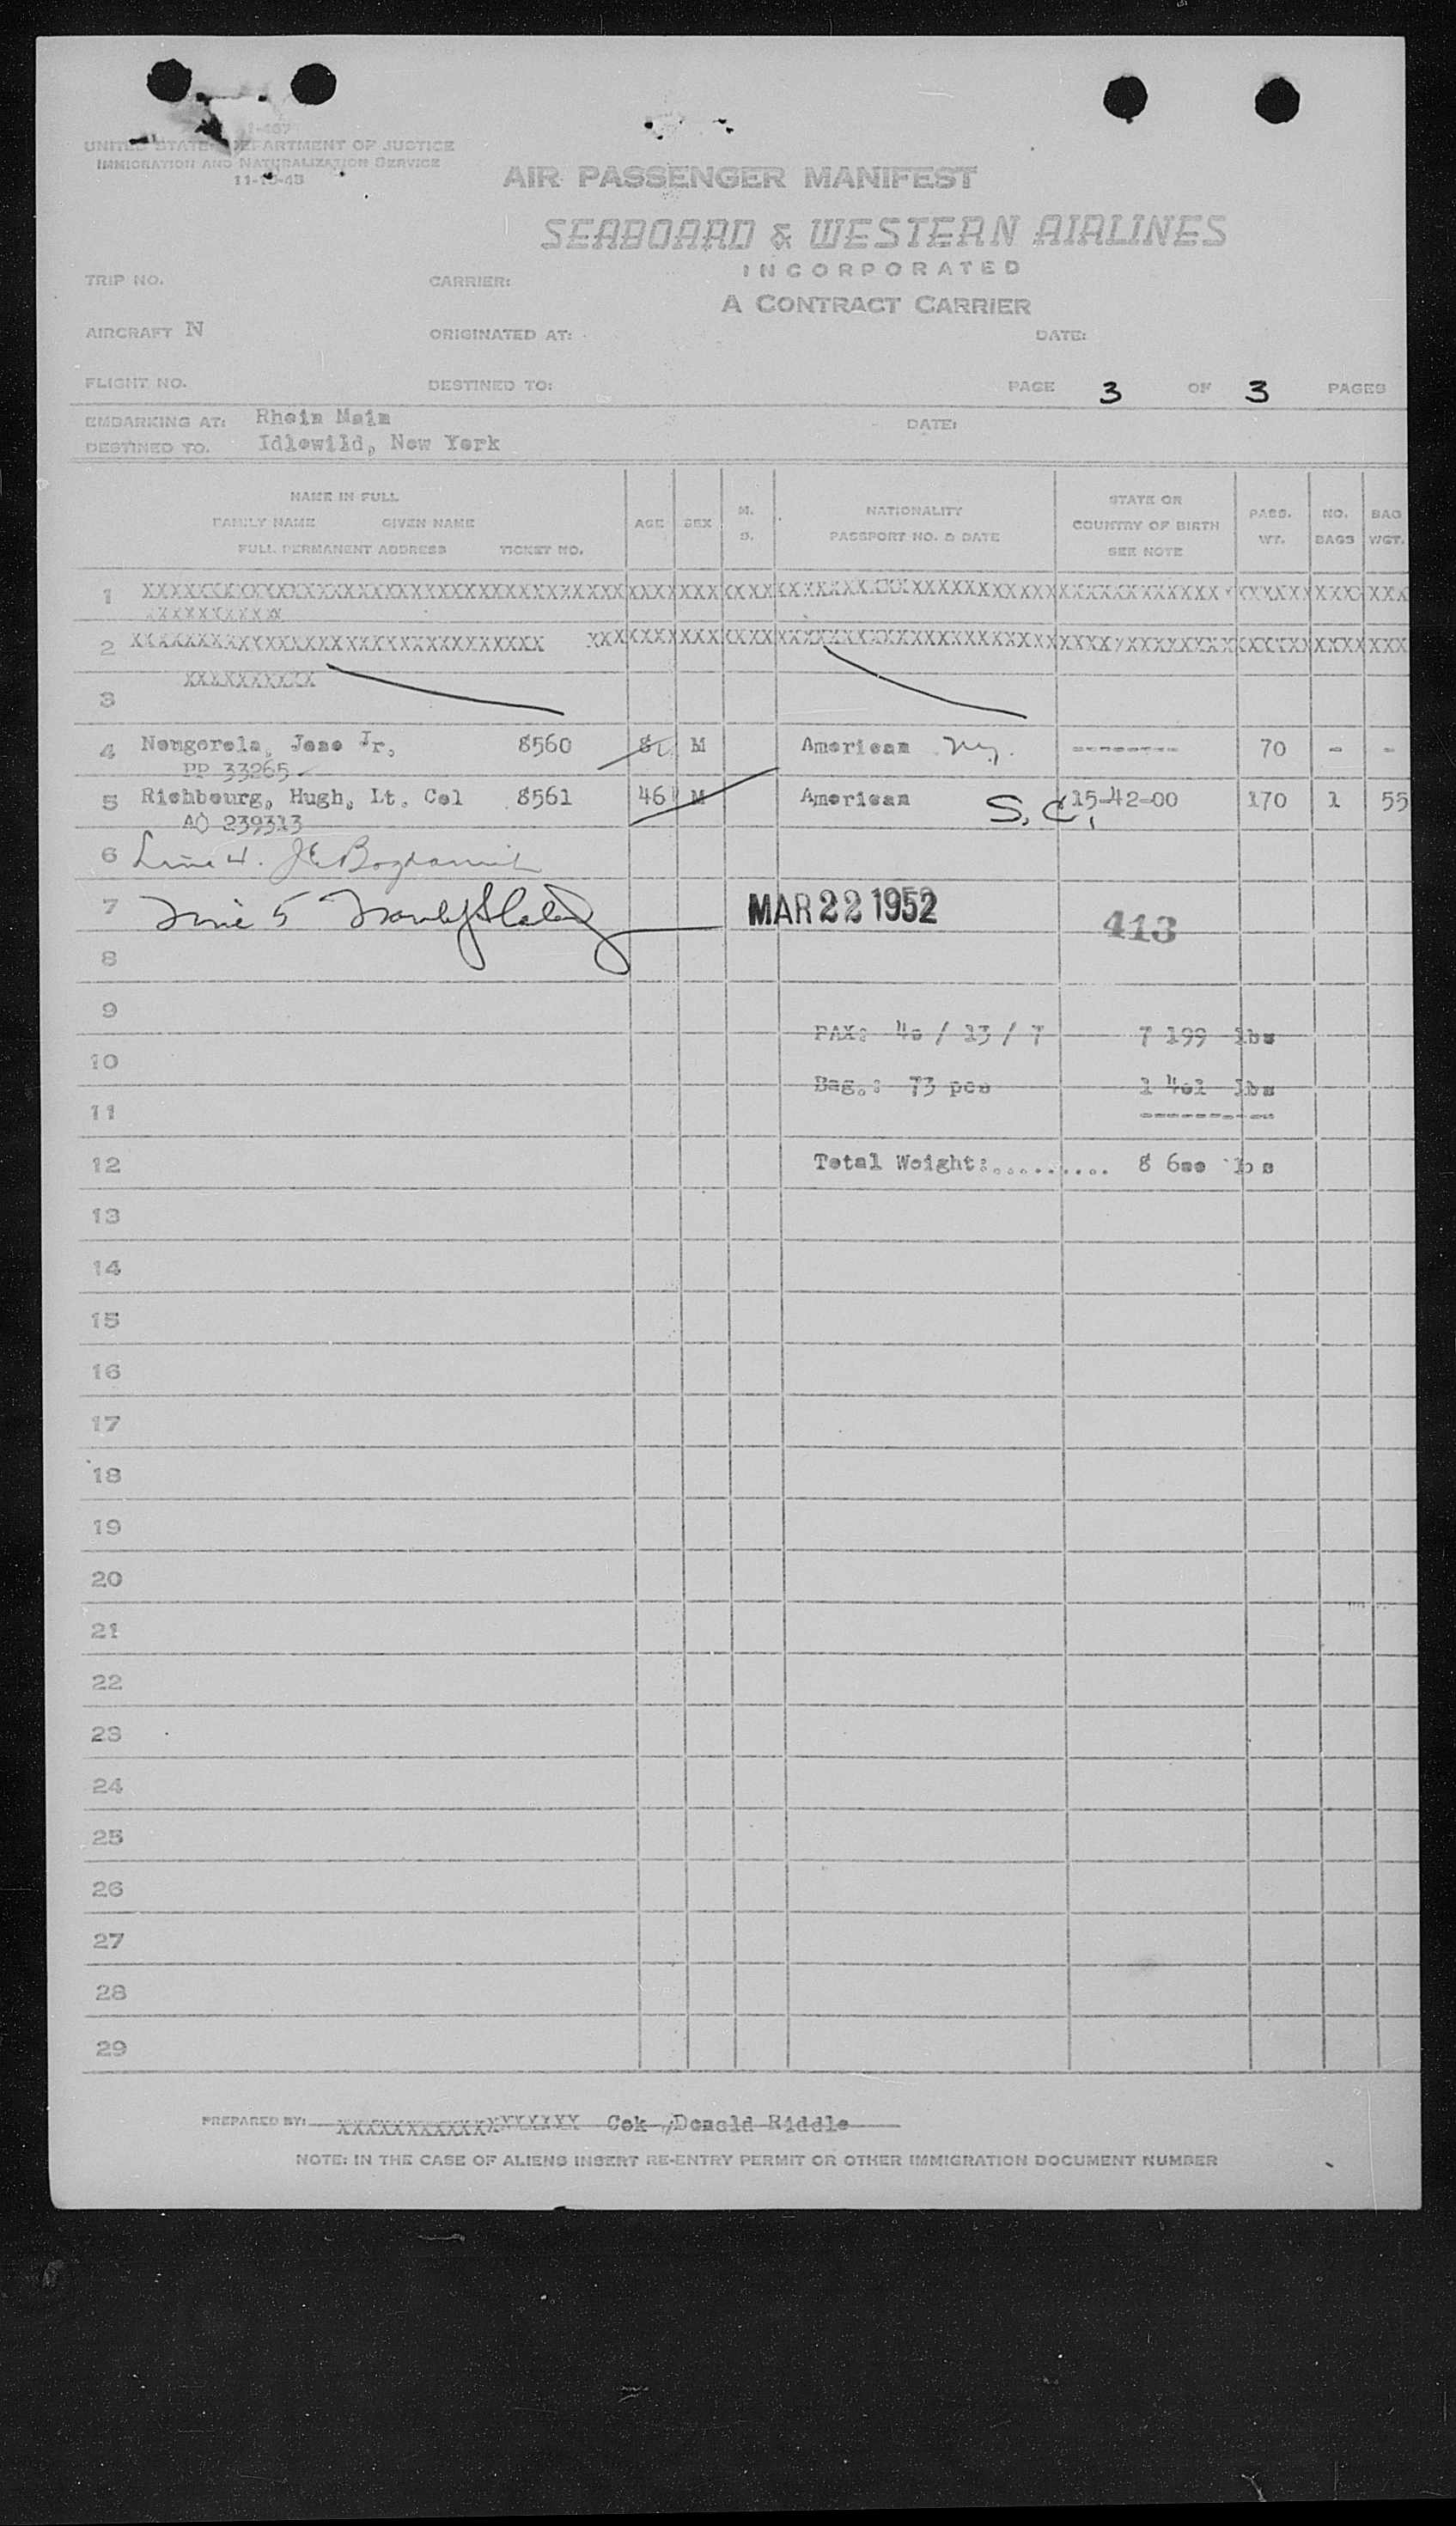 I-467
UNITED STATES DEPARTMENT OF JUSTICE
IMMIGRATION AND NATURALIZATION SERVICE
AIR PASSENGER MANIFEST
SEABOARD & WESTERN AIRLINES
INCORPORATED
A CONTRACT CARRIER
TRIP NO. CARRIER:
AIRCRAFT N ORIGINATED AT: DATE:
FLIGHT NO. DESTINED TO: PAGE 3 OF 3 PAGES
EMBARKING AT: Rhein Main DATE:
DESTINED TO. Idlewild, New York
NAME IN FULL
FAMILY NAME GIVEN NAME
FULL PERMANENT ADDRESS TICKET NO.
AGE SEX M. S.
NATIONALITY
PASSPORT NO. & DATE
STATE OR
COUNTRY OF BIRTH
SEE NOTE
PASS. WT. NO. BAGS BAG WGT.
1
2
3
4 Nongorela, Jose Jr, 8560 M American 70 - -
PP 33265
5 Richbourg, Hugh, Lt. Col 8561 46 M American S.C. 15-42-00 170 1 55
AO 239313
6 Line 4.
7 Line 5 MAR 22 1952 413
8
9
PAX: 4o / 13 / 7 7 199 lbs
10
Bag.: 73 pcs 1 4o1 lbs
11
12 Total Weight:.......... 8 6oo lbs
13
14
15
16
17
18
19
20
21
22
23
24
25
26
27
28
29
PREPARED BY: XXXXXXXXXXXXXXXXXX Cok, Donald Riddle
NOTE: IN THE CASE OF ALIENS INSERT RE-ENTRY PERMIT OR OTHER IMMIGRATION DOCUMENT NUMBER